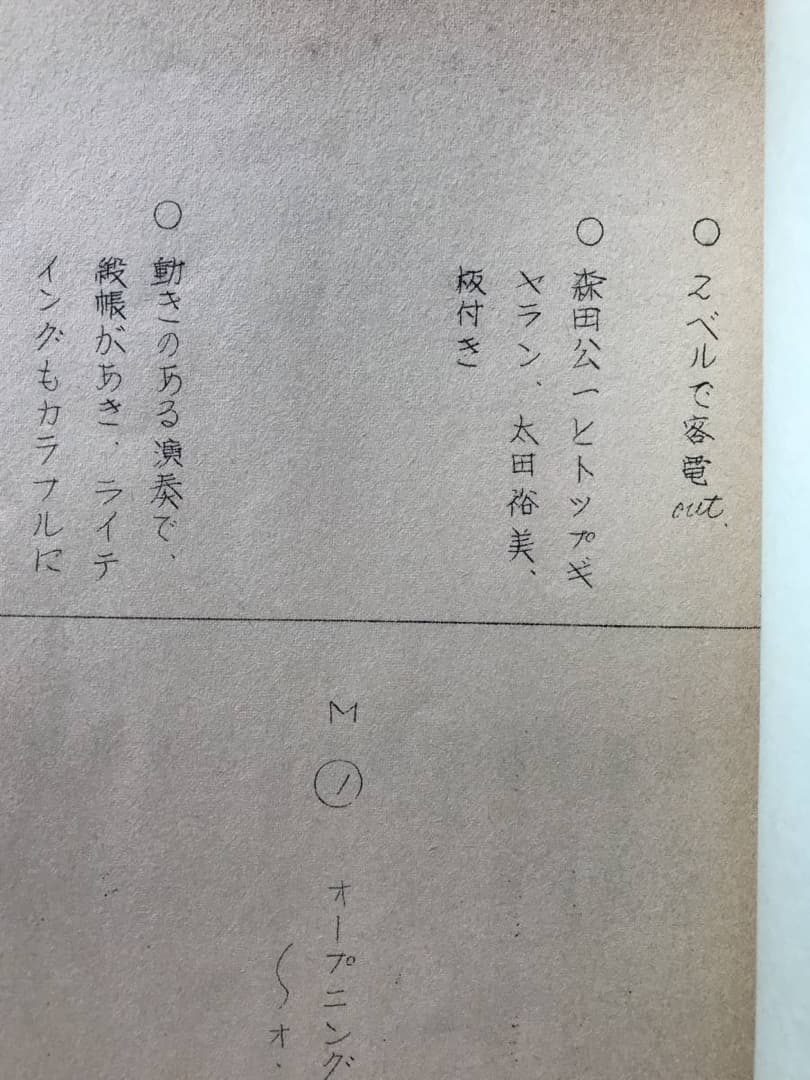 ○ 2ベルで客電out.
○ 森田公一とトップギ
ャラン、太田裕美、
板付き
○ 動きのある演奏で、
緞帳があき、ライテ
ィングもカラフルに
M①
オープニング
〜オ.